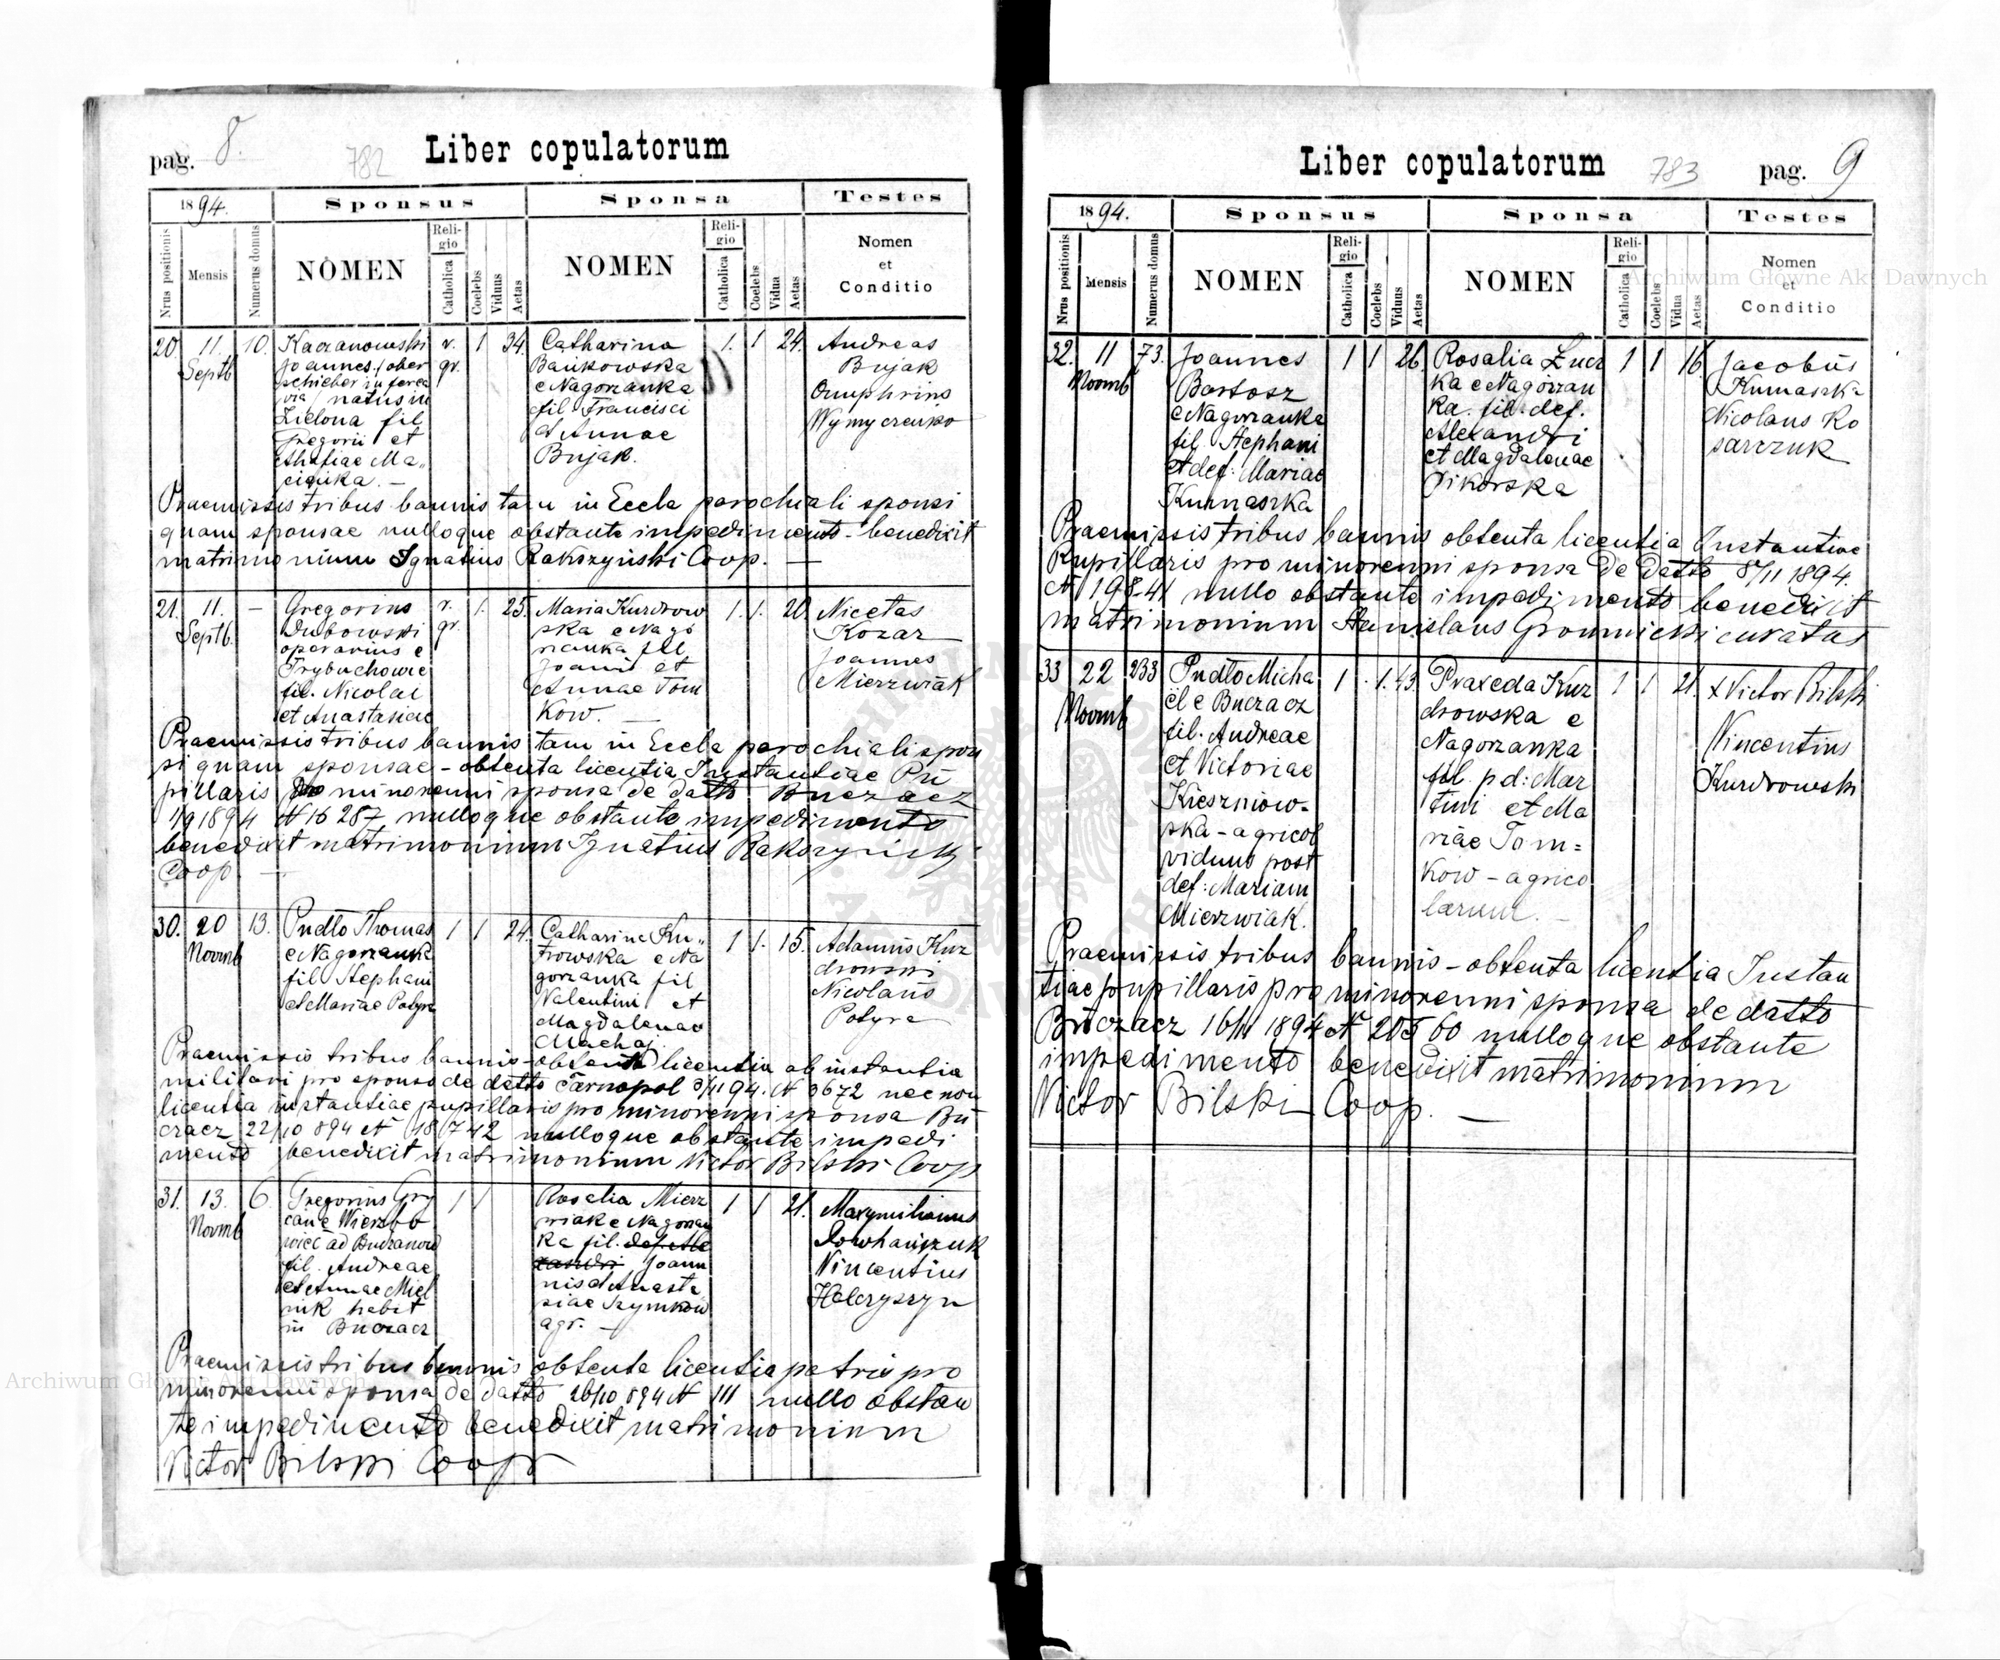 pag. 8.
782
Liber copulatorum
1894.
Sponsus
Sponsa
Testes
Nrus positionis
Mensis
Numerus domus
NOMEN
Religio
Catholica
Coelebs
Viduus
Aetas
NOMEN
Religio
Catholica
Coelebs
Vidua
Aetas
Nomen
et
Conditio
20 11. Septb 10. r. gr. 1 34 1. 1 24
Kaczanowski
Joannes
natus in
Zielona fil
Gregorii et
Catharina
Bańkowska
e Nagorzanka
fil Francisci
et Annae
Bujak.
Andreas
Bujak
Onuphrius
Praemissis tribus bannis tam in Eccla parochiali sponsi
quam sponsae nulloque obstante impedimento - benedixit
matrimonium Ignatius Rakszyński Coop. —
21. 11. Septb. — r. gr. 1. 25. 1. 1. 20
Gregorius
Dubowski
operarius e
Trybuchowce
fil. Nicolai
et Anastasiae
Maria Kurdrow
ska e Nago
rzanka fil
Joannis et
Annae Tom
kow. —
Nicetas
Kozar
Joannes
Mierzwiak
Praemissis tribus bannis tam in Eccla parochiali spon
si quam sponsae - obtenta licentia Instantiae Pu
pillaris pro minorenni sponsa de datto Buczacz
1/9 1894 N 16287 nulloque obstante impedimento
benedixit matrimonium Ignatius Rakszyński
Coop —
30. 20 Novmb 13. 1 1 24. 1 1. 15.
Pudło Thomas
e Nagorzanka
fil Stephani
et Mariae Potyra
Catharina Ku„
trowska e Na
gorzanka fil
Valentini et
Magdalenae
Machaj.
Adamus Kur
drowski
Nicolaus
Potyra
Praemissis tribus bannis - obtenta licentia ab instantia
militari pro sponso de datto Tarnopol 3/11 94. N 3672 nec non
licentia instantiae pupillaris pro minorenni sponsa Bu
czacz 22/10 894 N 18742 nulloque obstante impedi
mento benedixit matrimonium Victor Bilski Coop
31. 13. Novmb 6. 1 1 1 1 21.
Gregorius Gry
can e Wierzbo
wiec ad Budzanow
fil. Andreae
et Annae Miel
nik habit
in Buczacz
Rosalia Mierz
wiak e Nagorzan
ka fil. def. Ale
xandri Joan
nis et Anasta
siae Szymkow
agr. —
Maxymilianus
Vincentius
Praemissis tribus bannis obtenta licentia patris pro
minorenni sponsa de datto 26/10 894 N 111 nullo obstan
te impedimento benedixit matrimonium
Victor Bilski Coop
Liber copulatorum
783
pag. 9
1894.
Sponsus
Sponsa
Testes
Nrus positionis
Mensis
Numerus domus
NOMEN
Religio
Catholica
Coelebs
Viduus
Aetas
NOMEN
Religio
Catholica
Coelebs
Vidua
Aetas
Nomen
et
Conditio
32. 11 Novmb 73. 1 1 26. 1 1 16
Joannes
Bartosz
e Nagorzanka
fil Stephani
et def: Mariae
Kumaszka
Rosalia Łucz
ka e Nagorzan
ka. fil. def.
Alexandri
et Magdalenae
Sikorska
Jacobus
Kumaszka
Nicolaus Ko
sarczuk
Praemissis tribus bannis obtenta licentia Instantiae
Pupillaris pro minorenni sponsa de datto 8/11 1894.
nullo obstante impedimento benedixit
matrimonium Stanislaus Gromnicki curatus
33 22 Novmb 233 1 . 1. 43. 1 1 21.
Pudło Micha
ël e Buczacz
fil. Andreae
et Victoriae
Kieszniow-
ska - agricol
viduus post
def: Mariam
Mierzwiak.
Praxeda Kur
drowska e
Nagorzanka
fil. p. d: Mar
tini et Ma
riae Tom=
kow - agrico
larum. —
x Victor Bilski
Vincentius
Kurdrowski
Praemissis tribus bannis - obtenta licentia Instan
tiae pupillaris pro minorenni sponsa de datto
Buczacz 16/11 1894 N 20560 nulloque obstante
impedimento benedixit matrimonium
Victor Bilski Coop. —
Archiwum Główne Akt Dawnych
Archiwum Główne Akt Dawnych